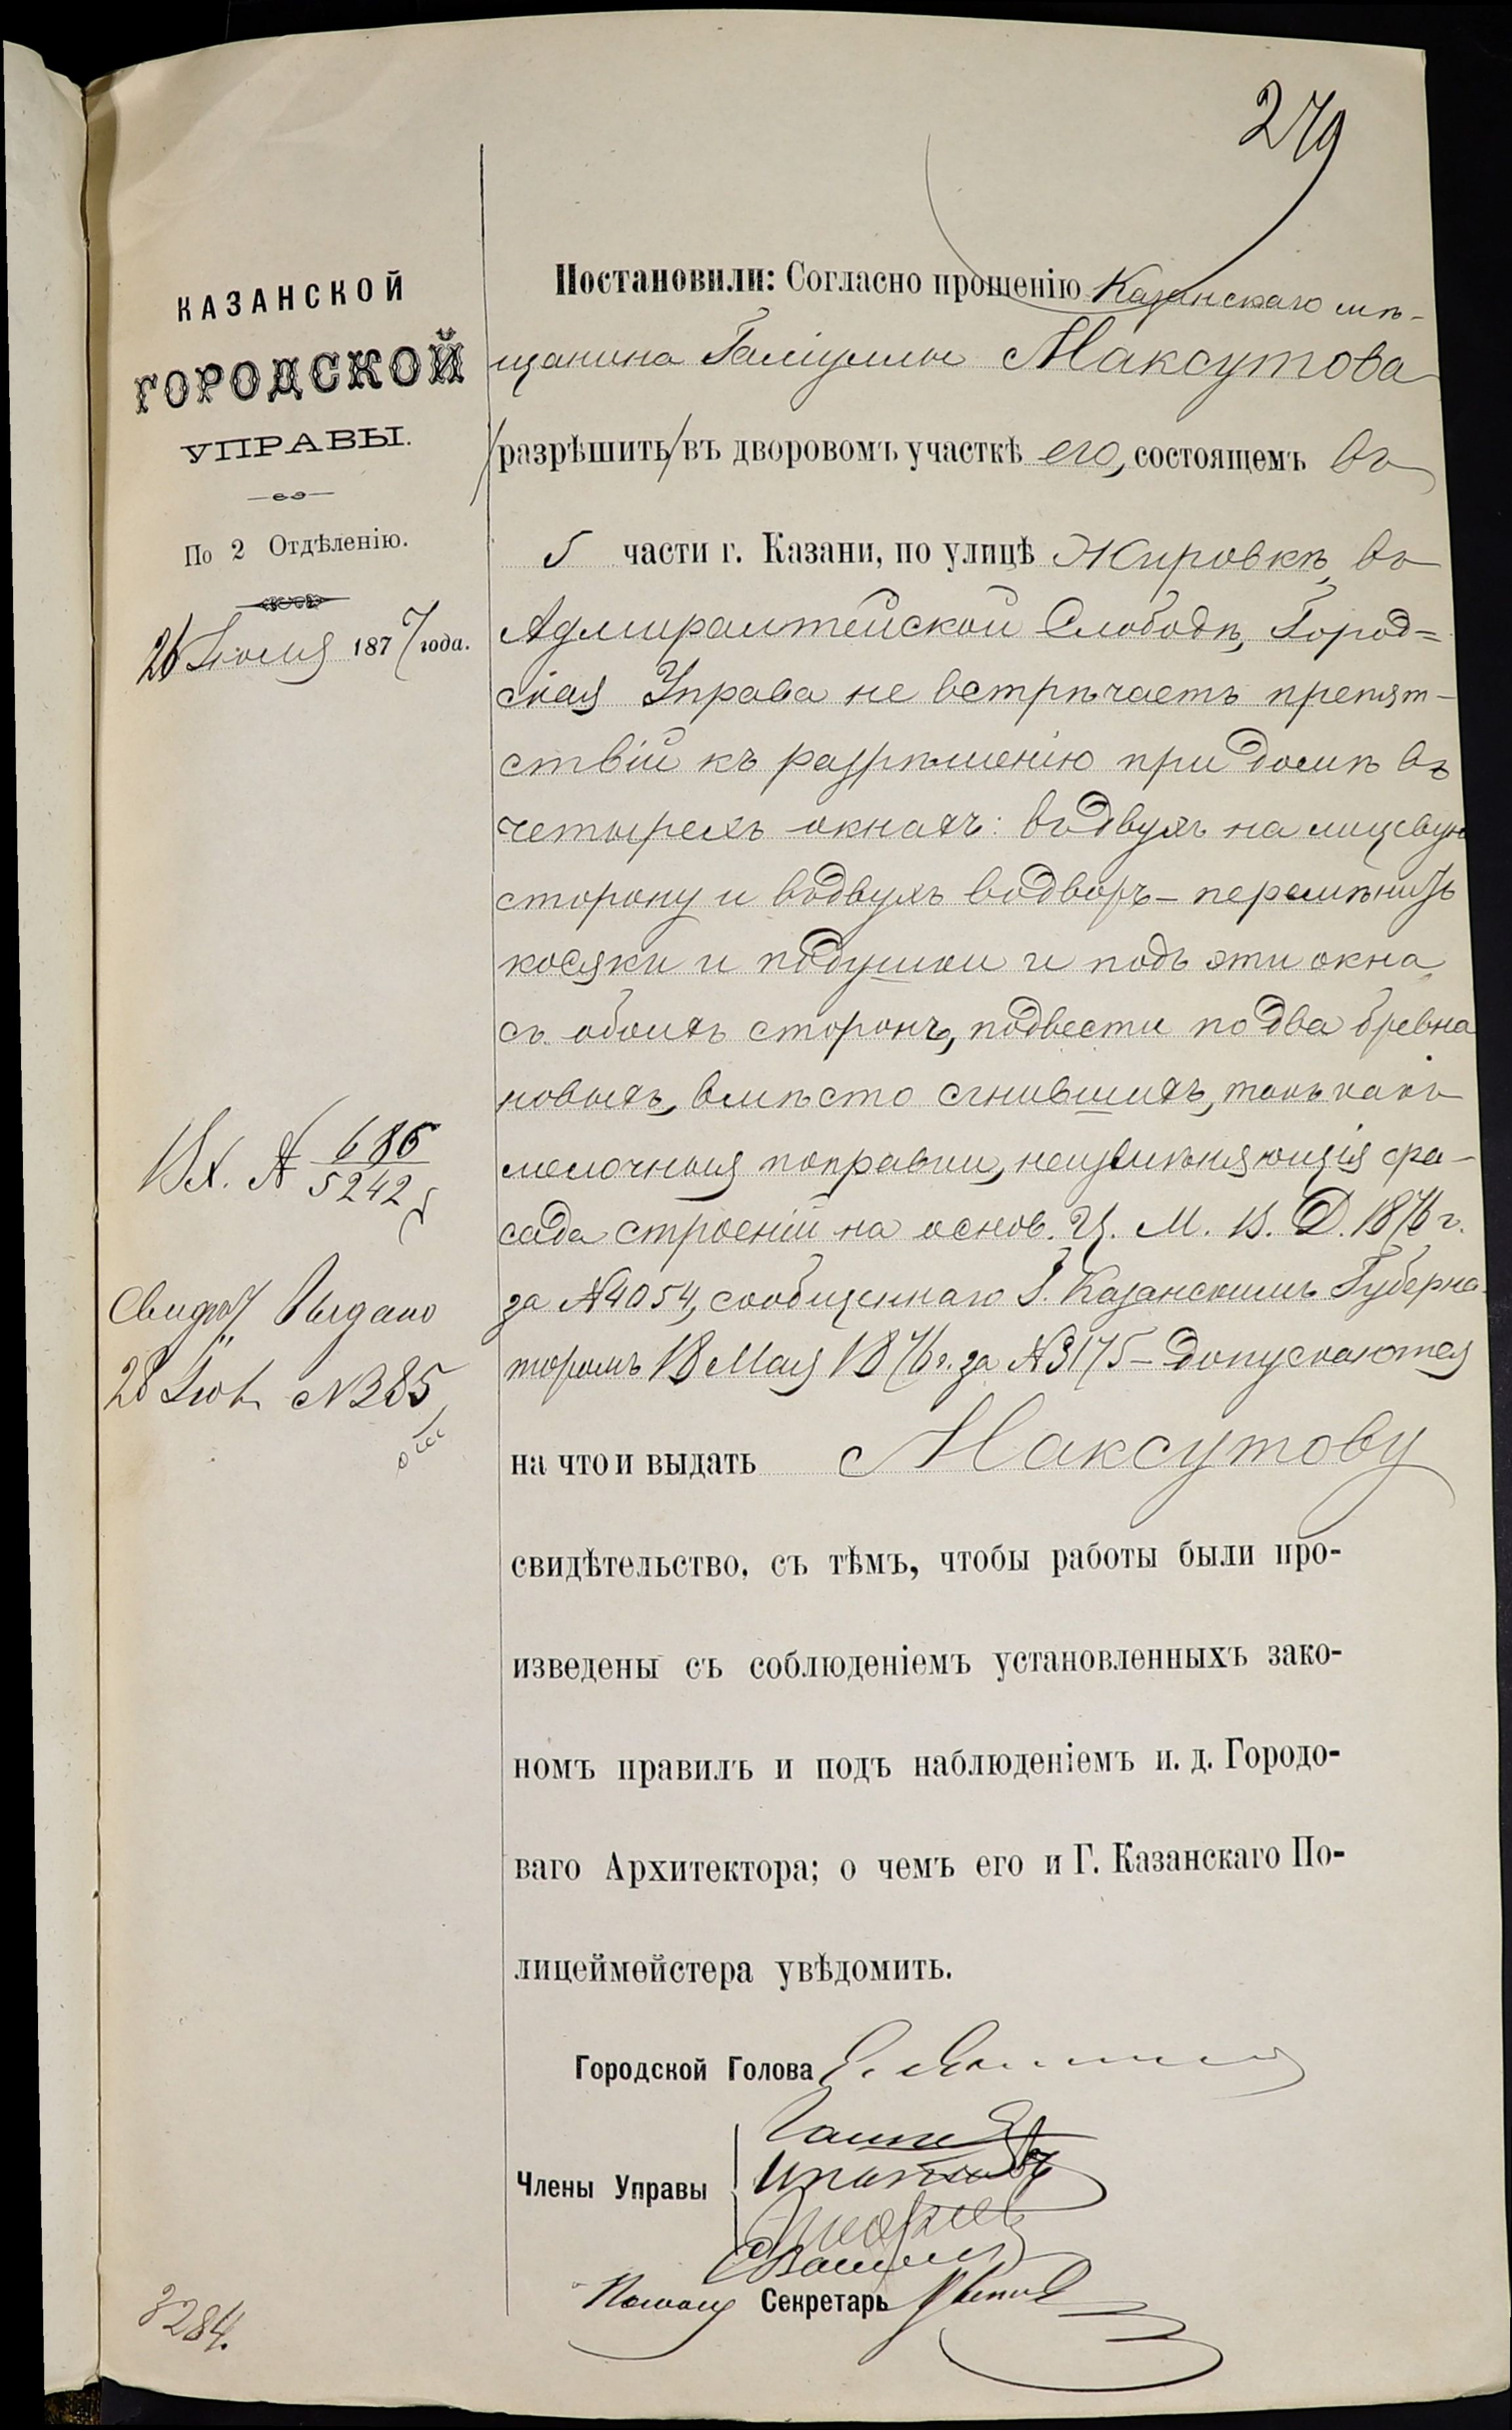 279
КАЗАНСКОЙ
ГОРОДСКОЙ
УПРАВЫ.
По 2 Отдѣленію.
26 Іюля 1877 года.
Вх. № 686
5242
Свидѣт. Выдано
28 Іюл. № 385
Постановили: Согласно прошенію Казанскаго мѣ-
щанина Галіуллы Максутова
разрѣшить въ дворовомъ участкѣ его, состоящемъ въ
5 части г. Казани, по улицѣ Жировкѣ, въ
Адмиралтейской Слободѣ, Город=
ская Управа не встрѣчаетъ препят-
ствій къ разрѣшенію при домѣ въ
четырехъ окнахъ: въ двухъ на лицевую
сторону и въ двухъ во дворъ – перемѣнить
косяки и подушки и подъ эти окна
съ обоихъ сторонъ, подвести по два бревна
новыхъ, вмѣсто сгнившихъ, такъ какъ
мелочныя поправки, неизмѣняющія фа-
сада строеній на основ. Ц. М. В. Д. 1876 г.
за № 4054, сообщеннаго Г. Казанскимъ Губерна-
торомъ 18 Мая 1876 г. за № 3175 – допускаются
на что и выдать Максутову
свидѣтельство, съ тѣмъ, чтобы работы были про-
изведены съ соблюденіемъ установленныхъ зако-
номъ правилъ и подъ наблюденіемъ и. д. Городо-
ваго Архитектора; о чемъ его и Г. Казанскаго По-
лицеймейстера увѣдомить.
Городской Голова
Члены Управы
Секретарь
3284.